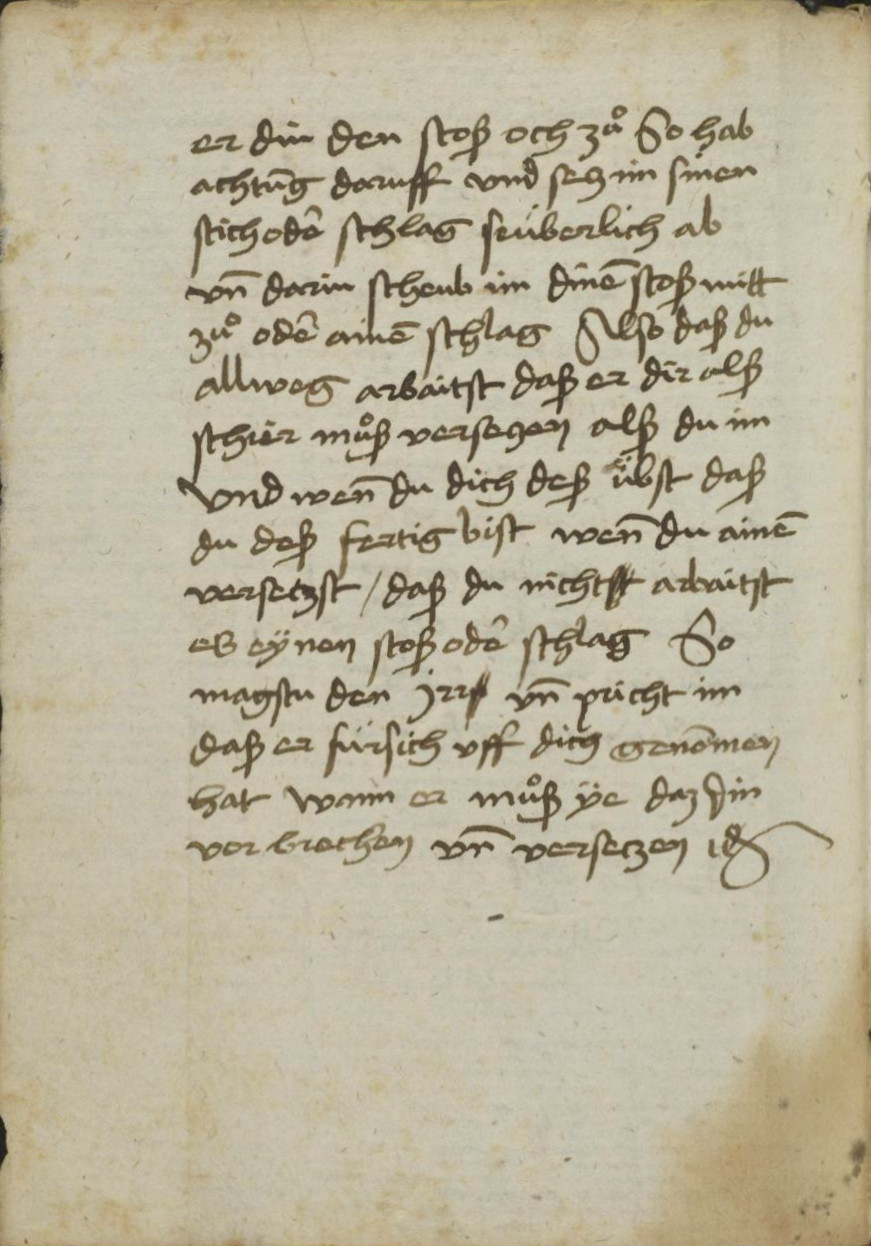 er din den stoß och zuͦ So hab
achtūg daruff vnd setz im sinen
stich odē schlag seüberlich ab
vn̄ darin scheub im dinē stoß mitt
zuͦ odē ainē schlag Also daß du
allweg arbaitst daß er dir alß
schier muͦß versetzen alß du im
Vnd wen̄ du dich deß übst daß
du deß fertig bist wen̄ du ainē
versetzst / daß du nichtst arbaitst
es eÿnen stoß odē schlag So
magstu den jrr vn̄ pricht im
daß er fürsich vff dich genōmen
hat Wann er muͦß ÿe daz din
vor brechen vn̄ versetzen